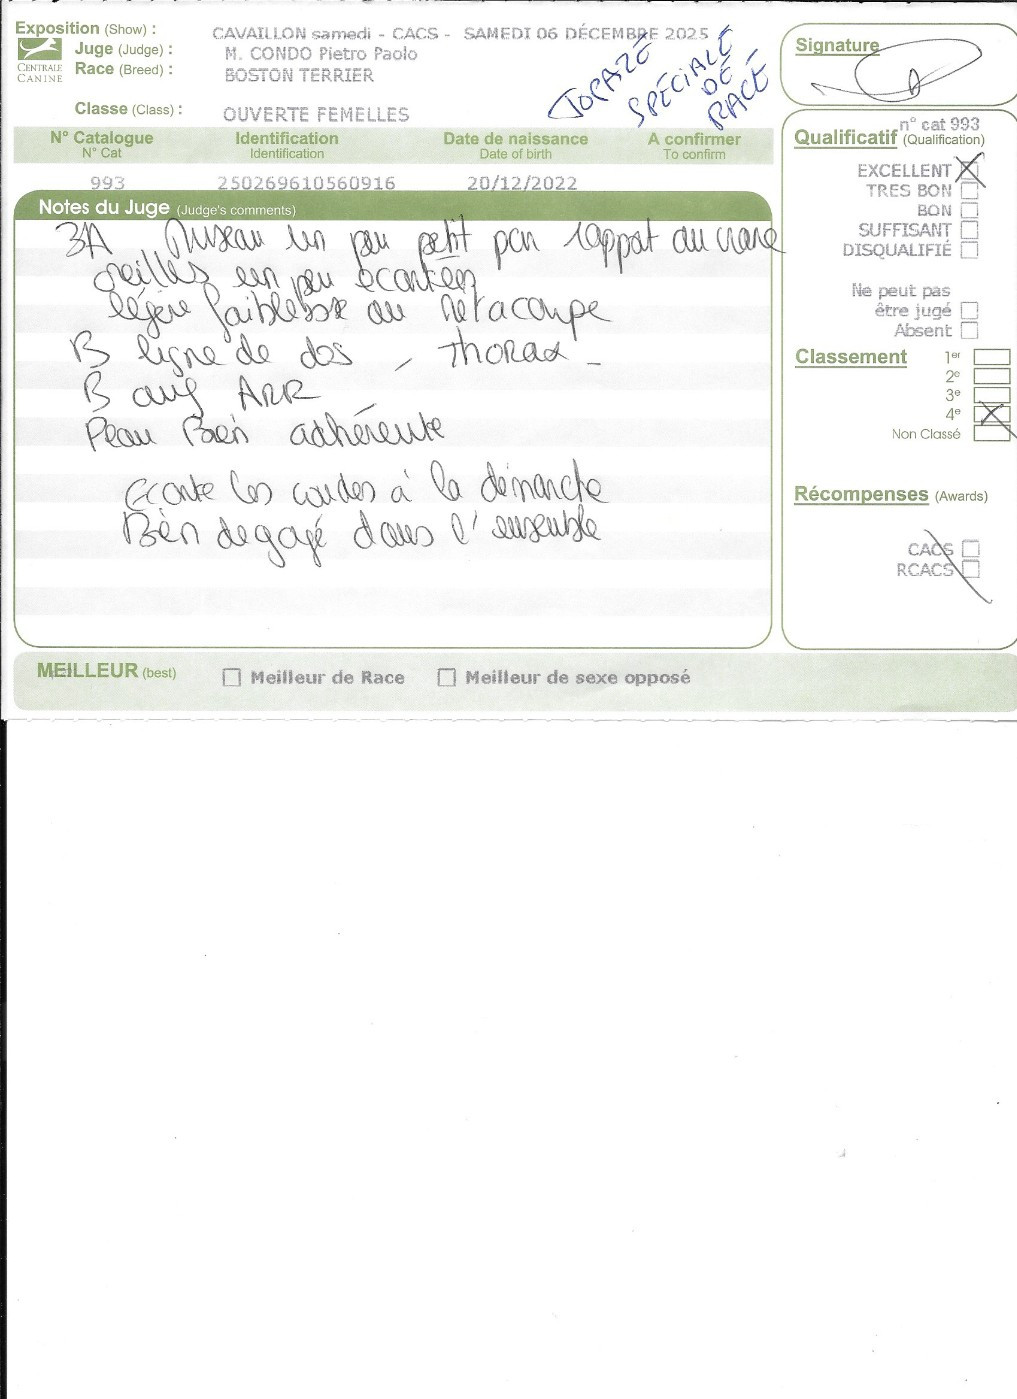 Exposition (Show) : CAVAILLON samedi - CACS - SAMEDI 06 DÉCEMBRE 2025
Juge (Judge) : M. CONDO Pietro Paolo
Race (Breed) : BOSTON TERRIER
CENTRALE
CANINE
Classe (Class) : OUVERTE FEMELLES
SPÉCIALE
DE
RACE
Signature
N° Catalogue Identification Date de naissance A confirmer
N° Cat Identification Date of birth To confirm
993 250269610560916 20/12/2022
Notes du Juge (Judge's comments)
3A Museau un peu petit par rappat au crane
oreilles un peu écartées
légère faiblesse au
B ligne de dos - thorax -
B ang ARR
Peau Bien adhérente
Ecarte les coudes à la démarche
Bien dégagé dans l'ensemble
n° cat 993
Qualificatif (Qualification)
EXCELLENT
TRES BON
BON
SUFFISANT
DISQUALIFIÉ
Ne peut pas
être jugé
Absent
Classement 1er
2e
3e
4e
Non Classé
Récompenses (Awards)
CACS
RCACS
MEILLEUR (best) Meilleur de Race Meilleur de sexe opposé